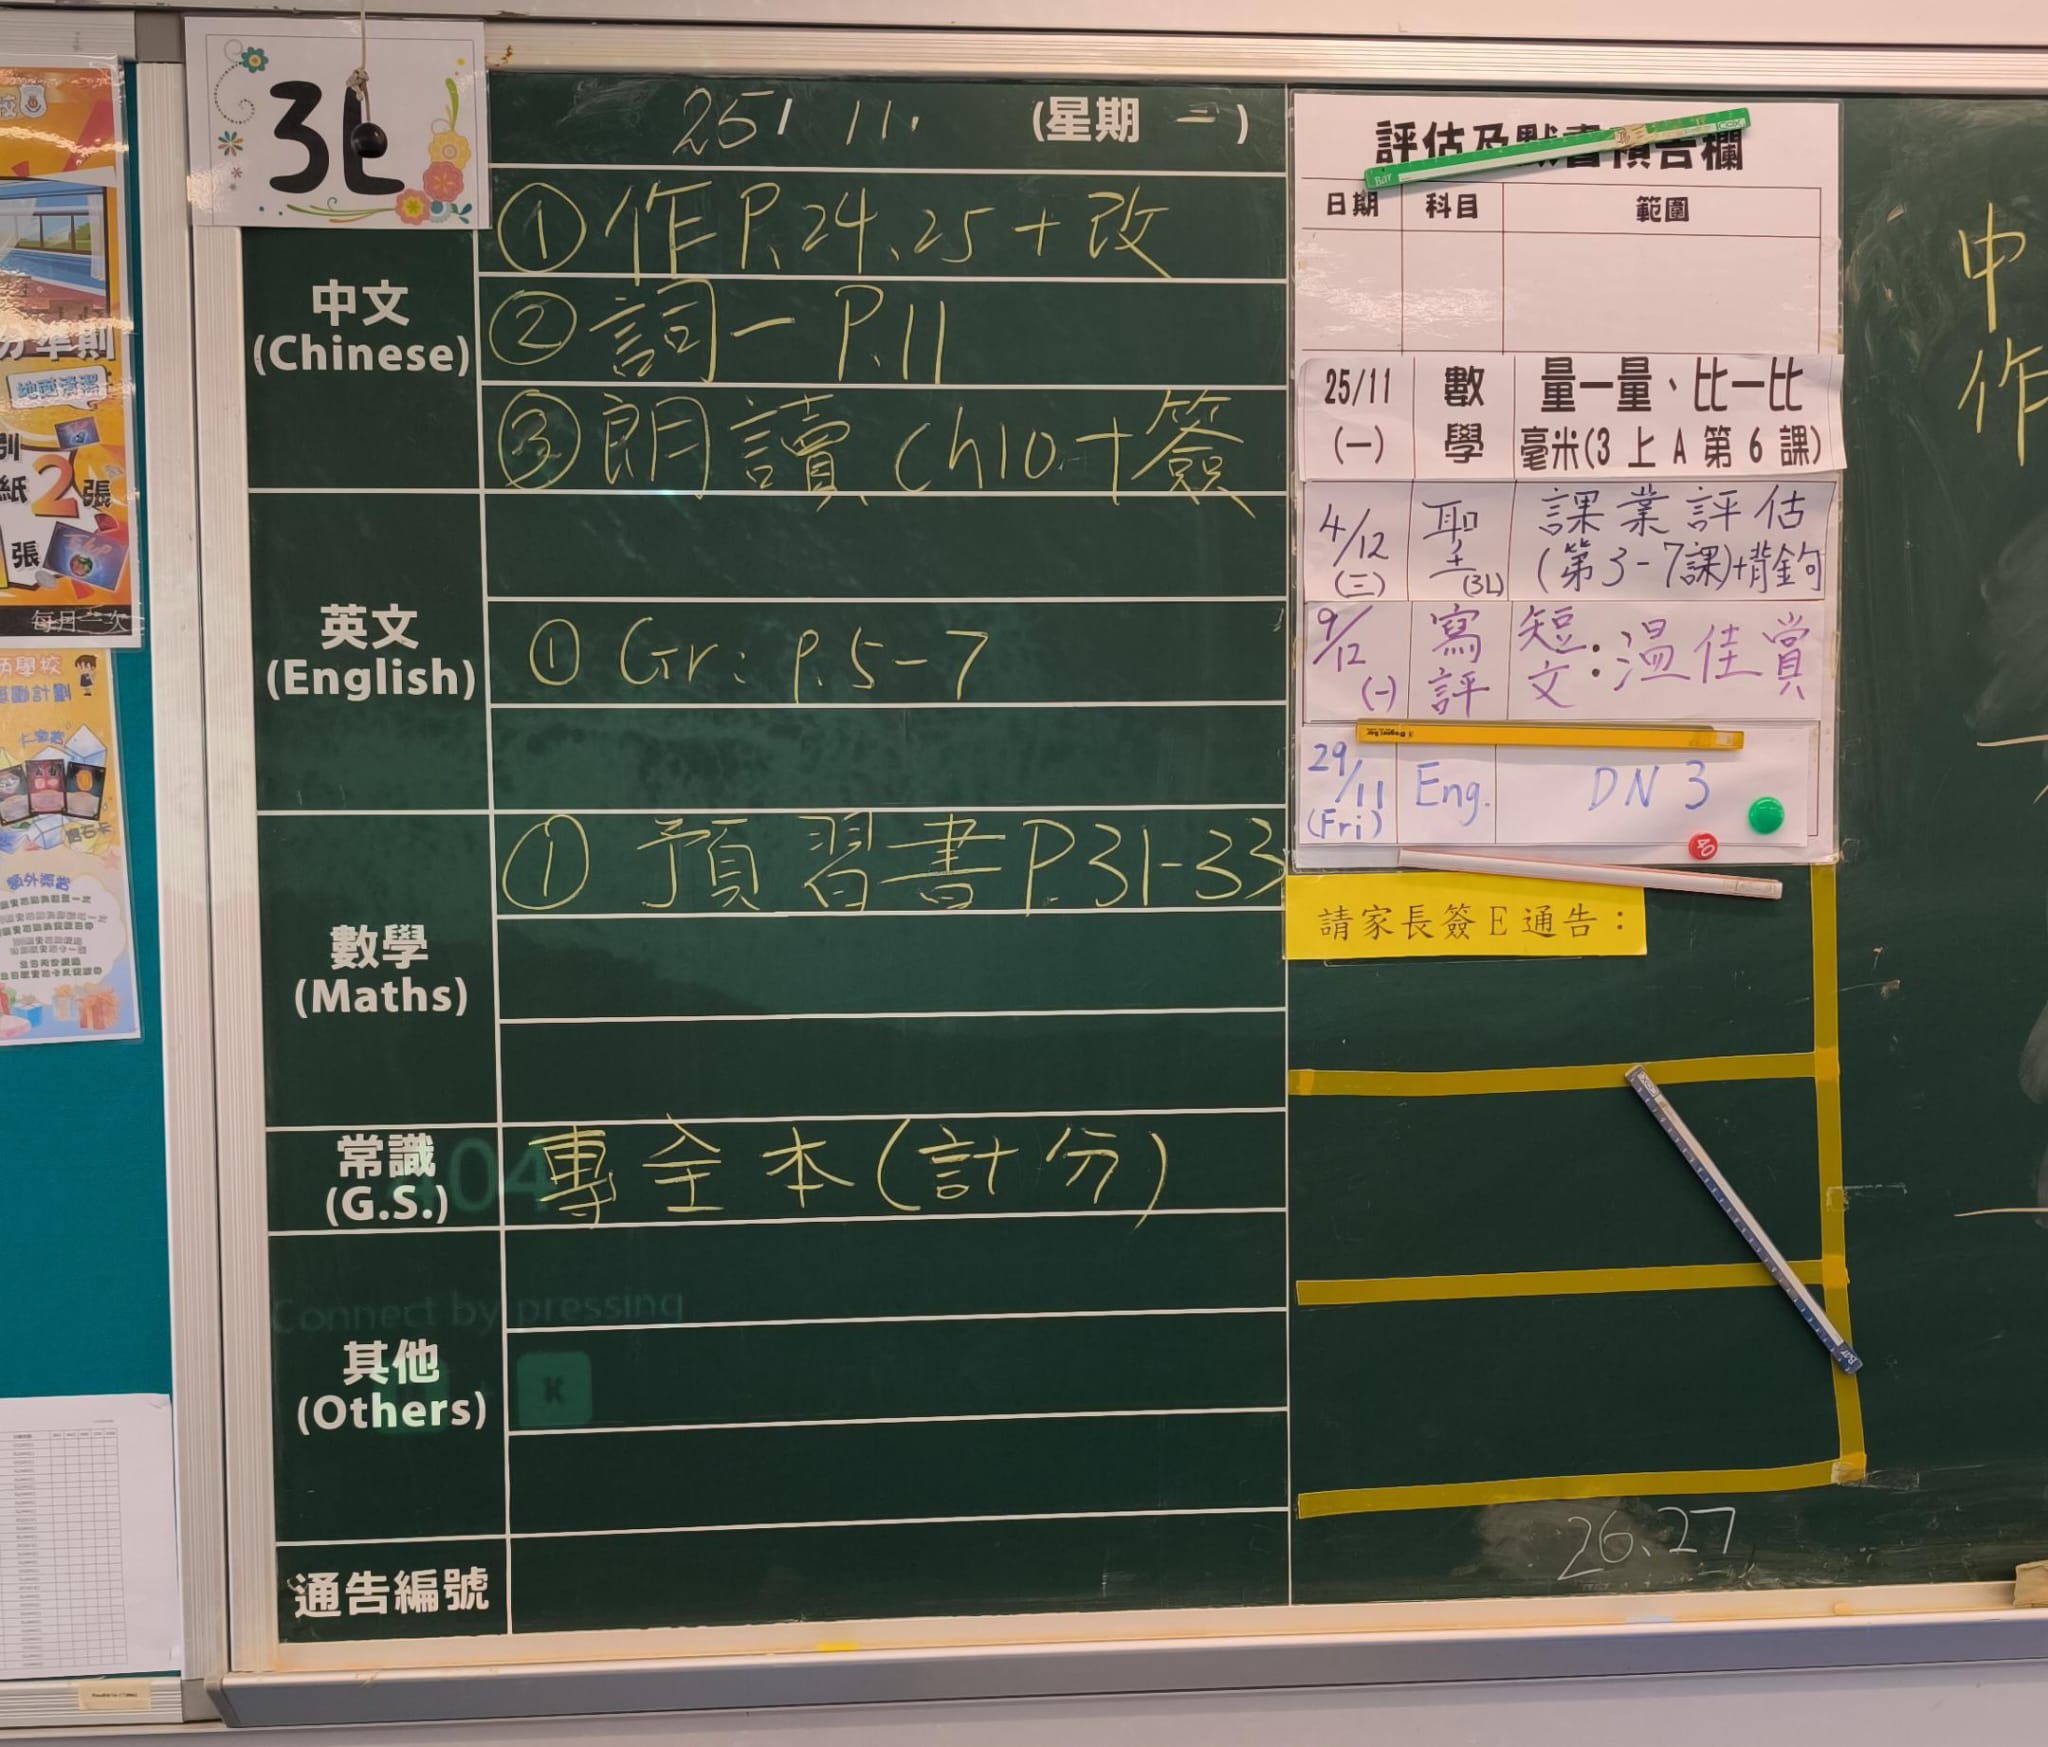 3L
25/ 11. (星期 二)
中文
(Chinese)
① 作 P.24、25 + 改
② 詞一 P.11
③ 朗讀 Ch10 + 簽
英文
(English)
① Gr: p.5-7
數學
(Maths)
① 預習書 P.31-33
常識
(G.S.)
專 全 本 (計分)
其他
(Others)
Connect by pressing
K
通告編號
評估及默書預告欄
日期 科目 範圍
25/11
(一)
數學
量一量、比一比
毫米(3 上 A 第 6 課)
4/12
(三)
聖
(3L)
課業評估
(第3-7課)+背金句
9/12
(一)
寫評
短文:溫佳賞
29/11
(Fri)
Eng.
DN 3
請家長簽 E 通告:
26、27
中
作
準則
地面清潔
紙 2 張
張
每月一次